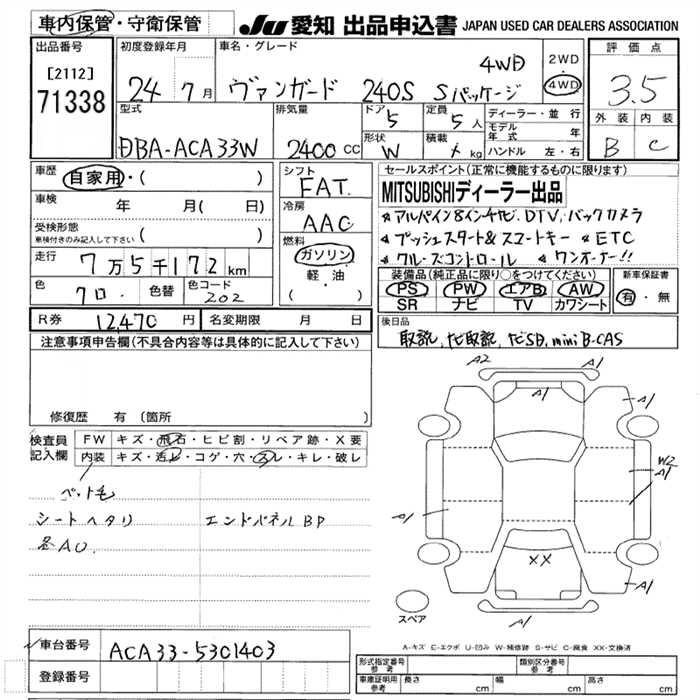 車内保管・守衛保管
JU 愛知 出品申込書 JAPAN USED CAR DEALERS ASSOCIATION
出品番号 初度登録年月 車名・グレード 評価点
[2112]
71338
24 7月 ヴァンガード 240S Sパッケージ 4WD
2WD
4WD
3.5
型式 排気量 ドア 定員 ディーラー・並行 外装 内装
5 5人
DBA-ACA33W 2400 CC
形状 積載 モデル年式 年
W kg ハンドル 左・右
B C
車歴 自家用・( )
シフト FAT
セールスポイント(正常に機能するものに限ります)
MITSUBISHIディーラー出品
車検 年 月( 日)
冷房 AAC
アルパイン8インチナビ、DTV、バックカメラ
受検形態
車検付きのみ記入して下さい ( )
プッシュスタート&スマートキー ETC
クルーズコントロール ワンオーナー!!
走行 7万5千172km
燃料 ガソリン・軽・油 ( )
装備品(純正品に限り○をつけてください) 新車保証書
PS PW エアB AW 有・無
SR ナビ TV カワシート
色 クロ 色替 色コード 202
R券 12,470円 名変期限 月 日
後日品
取説、ナビ取説、ナビSD、miniB-CAS
注意事項申告欄(不具合内容等は具体的に記入して下さい)
修復歴 有(箇所 )
A2 A1
A1
A1
検査員記入欄 FW キズ・飛石・ヒビ割・リペア跡・X要
内装 キズ・汚レ・コゲ・穴・スレ・キレ・破レ
W2
A1
ペット毛
シートヘタリ エンドパネルBP
各AU.
A1
XX
A1
A1
スペア
A-キズ E-エクボ U-凹み W-補修跡 S-サビ C-腐食 XX-交換済
車台番号 ACA33-5301403
登録番号
形式指定番号 参考 類別区分番号 参考
車庫証明用 参考 長さ cm 幅 cm 高さ cm